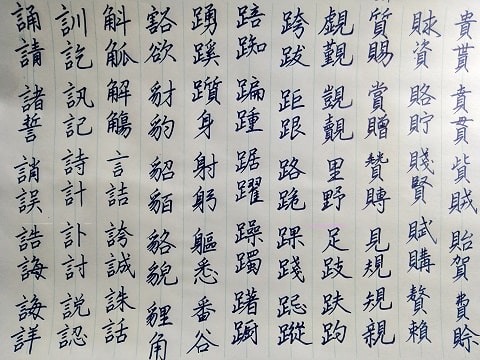 貴貰責貫貲賊貽賀費賒
賕資賂貯賤賢賦購贅賴
質賜賞贈贊賻見規規親
覷覲覬覿里野足跂趺趵
跨跋距跟路跪踝踐跽蹤
踣踟蹁踵踞躍躁躅躇躕
踴蹊躓身射躬軀悉番谷
豁欲豺豹貂貊貉貌貍角
斛觚解觴言詰誇誠誅話
訓訖訊記詩計訃討説認
誦請諸誓誚誤誥誨誨詳